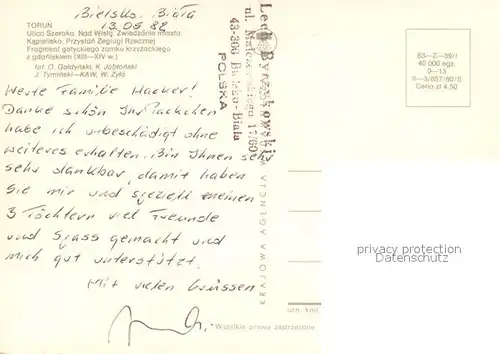 Bielsko-Biała
13.05 82
TORUŃ
Ulica Szeroka. Nad Wisłą. Zwiedzanie miasta.
Kąpielisko. Przystań Żeglugi Rzecznej
Fragment gotyckiego zamku krzyżackiego
z gdaniskiem (XIII—XIV w.)
fot. G. Gałdyński, K. Jabłoński
J. Tymiński—KAW, W. Żyła
Werte Familie Hacker!
Danke schön Ihr Päckchen
habe ich unbeschädigt ohne
weiteres erhalten. Bin Ihnen sehr
sehr dankbar, damit haben
Sie mir und speziell meinen
3 Töchtern viel Freunde
und Spass gemacht und
mich gut unterstützt.
Mit vielen Grüssen
Lech Byrzykowski
ul.
43-300 Bielsko-Biała
POLSKA
KRAJOWA AGENCJA
63—2—39/I
40 000 egz.
0—13
II—3/857/80/S
Cena zł 4,50
privacy protection
Datenschutz
kod
Wszelkie prawa zastrzeżone